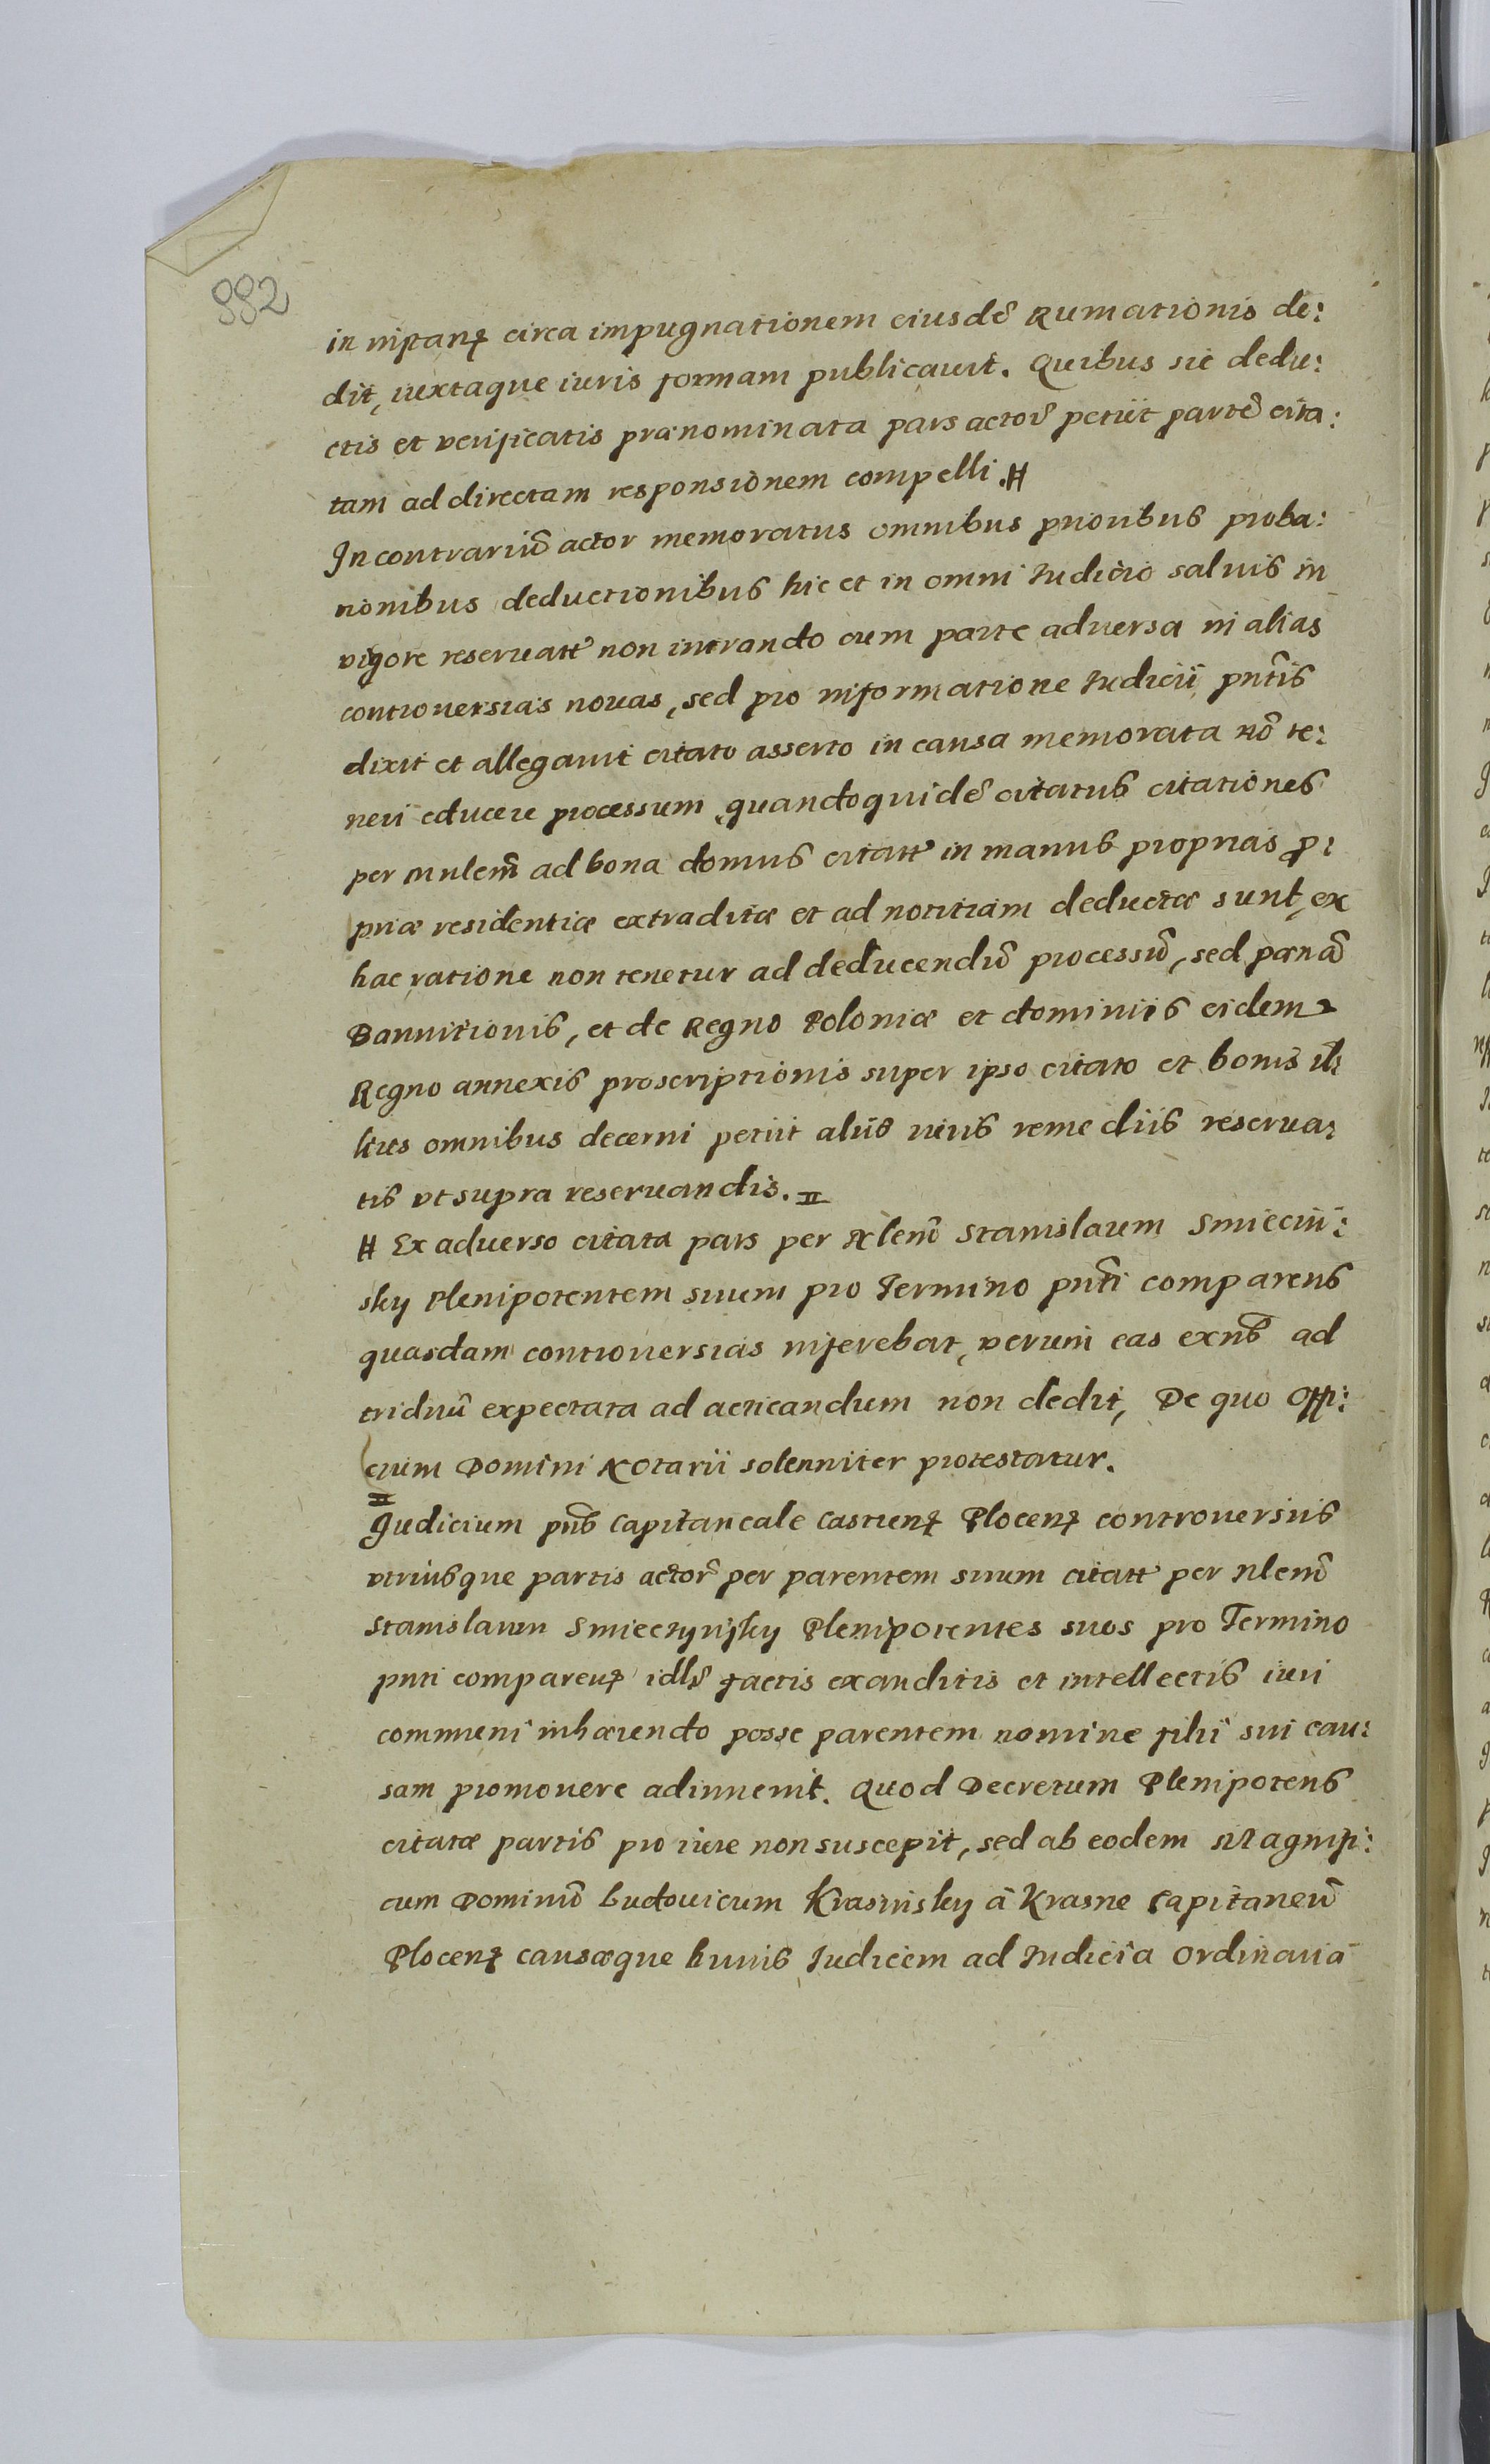 992
in instanꝫ circa impugnationem eiusdẽ Rumationis de:
dit, iuxtaque iuris formam publicauit. Quibus sic dedu:
ctis et verificatis prænominata pars actoř petiit partẽ cita:
tam ad directam responsionem compelli.#
In contrariũ actor memoratus omnibus prioribus proba:
tionibus deductionibus hic et in omni Iudicio saluis in
vigore reseruatt non intrando cum parte aduersa in alias
controuersias nouas, sed pro informatione Iudicii pñtis
dixit et allegauit citato asserto in causa memorata nõ te:
neri educere processum, quandoquidẽ citatus citationes
per mñlem ad bona domus citatt in manus proprias ꝓ:
priæ residentiæ extraditæ et ad notitiam deductæ sunt, ex
hac ratione non tenetur ad deducendũ processũ, sed pænã
Bannitionis, et de Regno Poloniæ et dominiis eidem
Regno annexis proscriptionis super ipso citato et bonis il:
lius omnibus decerni petiit aliis iuris remediis reserua:
tis vt supra reseruandis. II
# Ex aduerso citata pars per Nlem̃ Stanislaum Smiecin:
sky Plenipotentem suum pro Termino pñti comparens
quasdam controuersias inferebat, verum eas exñs ad
triduũ expectata ad acticandum non dedit, De quo Offi:
cium Domini Notarii solenniter protestatur.
II
Iudicium pñs Capitaneale Castrenꝫ Plocenꝫ controuersiis
vtriusque partis actoř per parentem suum citatt per Nlem̃
Stanislaum Smieczynsky Plenipotentes suos pro Termino
pnti comparenꝫ idlř factis exauditis et intellectis iuri
communi inhærendo posse parentem nomine filii sui cau:
sam promouere adinuenit. Quod Decretum Plenipotens
citatæ partis pro iure non suscepit, sed ab eodem Magnifi:
cum Dominũ Ludouicum Krasinsky à Krasne Capitaneũ
Plocenꝫ causæque huius Iudicem ad Iudicia Ordinaria